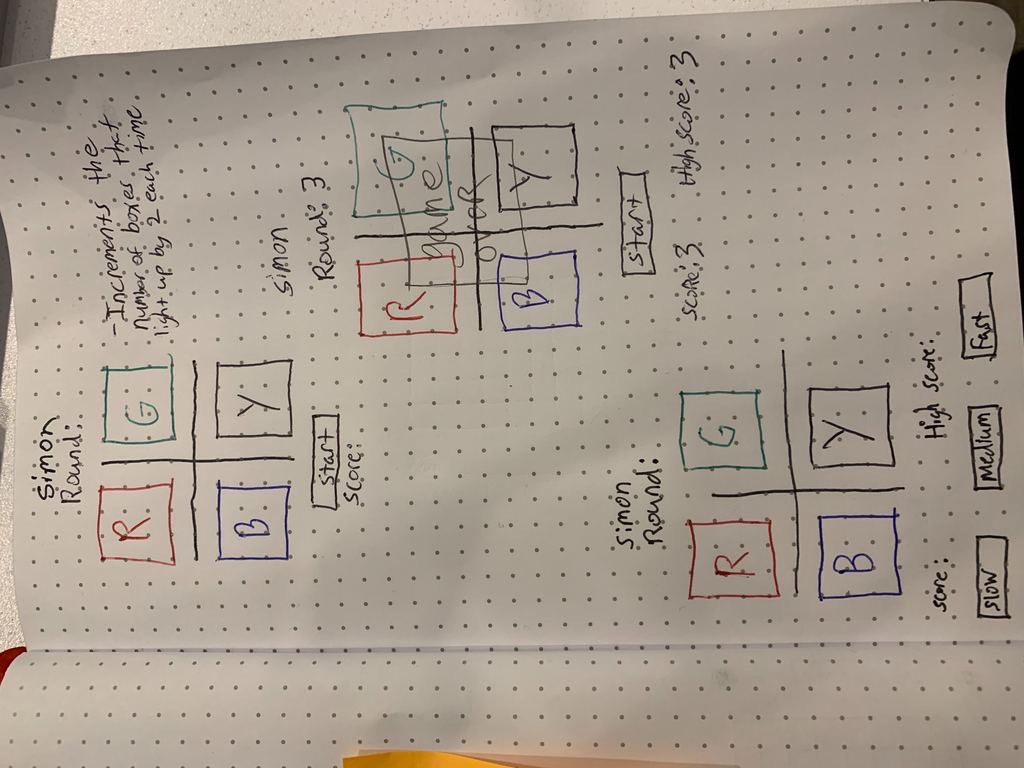 Simon
Round:
R G
B Y
Start
Score:
- Increments the
number of boxes that
light up by 2 each time
Simon
Round: 3
R G
game
over
B Y
Start
Score: 3 High Score: 3
Simon
Round:
R G
B Y
score: High score:
slow Medium Fast